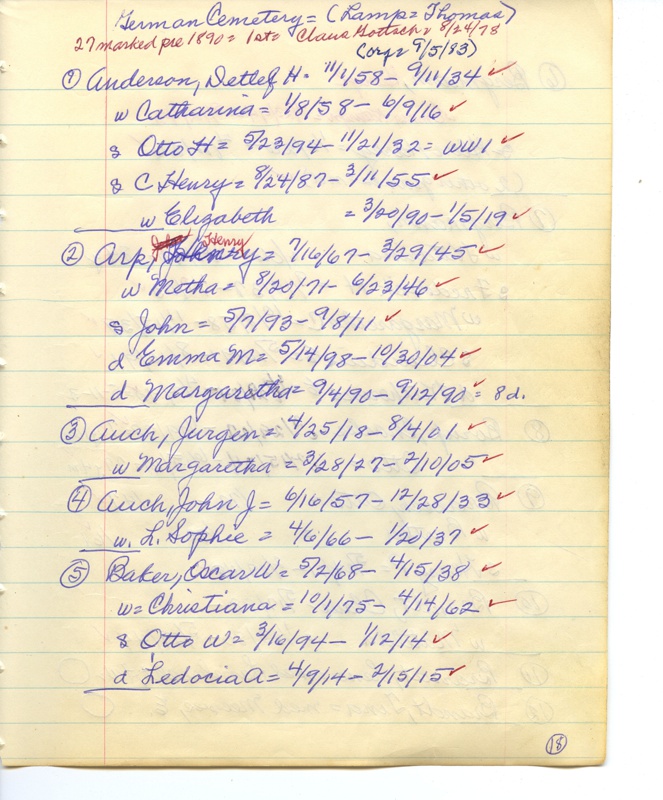 German Cemetery = (Lamp = Thomas)
27 marked pre 1890 = 1st = Claus Gottsch = 8/24/78
(org = 9/5/83)
① Anderson, Detlef H = 11/1/58 - 9/11/34 ✓
w Catharina = 1/8/58 - 6/9/16 ✓
s Otto H = 5/23/94 - 11/21/32 = WW1 ✓
s C Henry = 8/24/87 - 3/11/55 ✓
w Elizabeth = 3/20/90 - 1/5/19 ✓
② Arp, Henry = 7/16/67 - 3/29/45 ✓
w Metha = 8/20/71 - 6/23/46 ✓
s John = 5/7/93 - 9/8/11 ✓
d Emma M = 5/14/98 - 10/30/04 ✓
d Margaretha = 9/4/90 - 9/12/90 ✓ = 8 d.
③ Auch, Jurgen = 4/25/18 - 8/4/01 ✓
w Margaretha = 3/28/27 - 2/10/05 ✓
④ Auch, John J = 6/16/57 - 12/28/33 ✓
w. L. Sophie = 4/6/66 - 1/20/37 ✓
⑤ Baker, Oscar W = 5/2/68 - 4/15/38 ✓
w = Christiana = 10/1/75 - 4/14/62 ✓
s Otto W = 3/16/94 - 1/12/14 ✓
d Ledocia A = 4/9/14 - 2/15/15 ✓
⑱